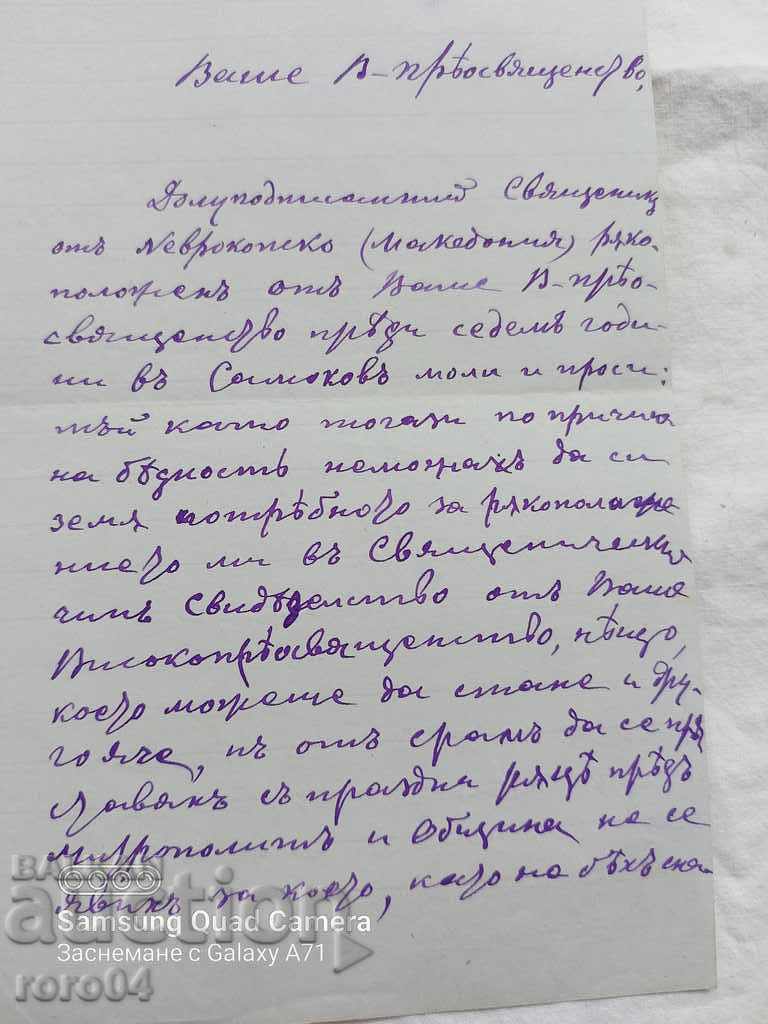 Ваше В-прѣосвященство,
Долуподписаний Священикъ
отъ Неврокопско (Македония) ряко-
положенъ отъ Ваше В-прѣо-
священство прѣди седемъ годи-
ни въ Самоковъ моли и проси:
тъй като тогази по причина
на бѣдность неможахъ да си
земя потрѣбното за рякополаже
нието ми въ Священически
чинъ Свидѣтелство отъ Ваше
Високопрѣосвященство, нѣщо,
което можеше да стане и дру-
гояче, нъ отъ срамъ да се
съ праздни ряцѣ прѣдъ
и Община не се
явихъ за което, като на
BA
auction
Samsung Quad Camera
Заснемане с Galaxy A71
roro04